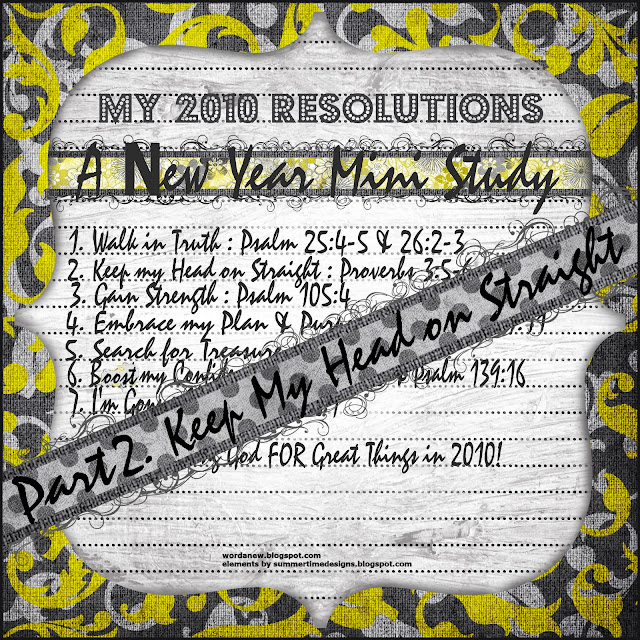 MY 2010 RESOLUTIONS
A New Year Mini Study
1. Walk in Truth : Psalm 25:4-5 & 26:2-3
2. Keep my Head on Straight : Proverbs 3:5-
3. Gain Strength : Psalm 105:4
4. Embrace my Plan &
5. Search for
6. Boost my Psalm 139:16
7. I'm
God FOR Great Things in 2010!
Part 2. Keep My Head on Straight
wordanew.blogspot.com
elements by summertimedesigns.blogspot.com